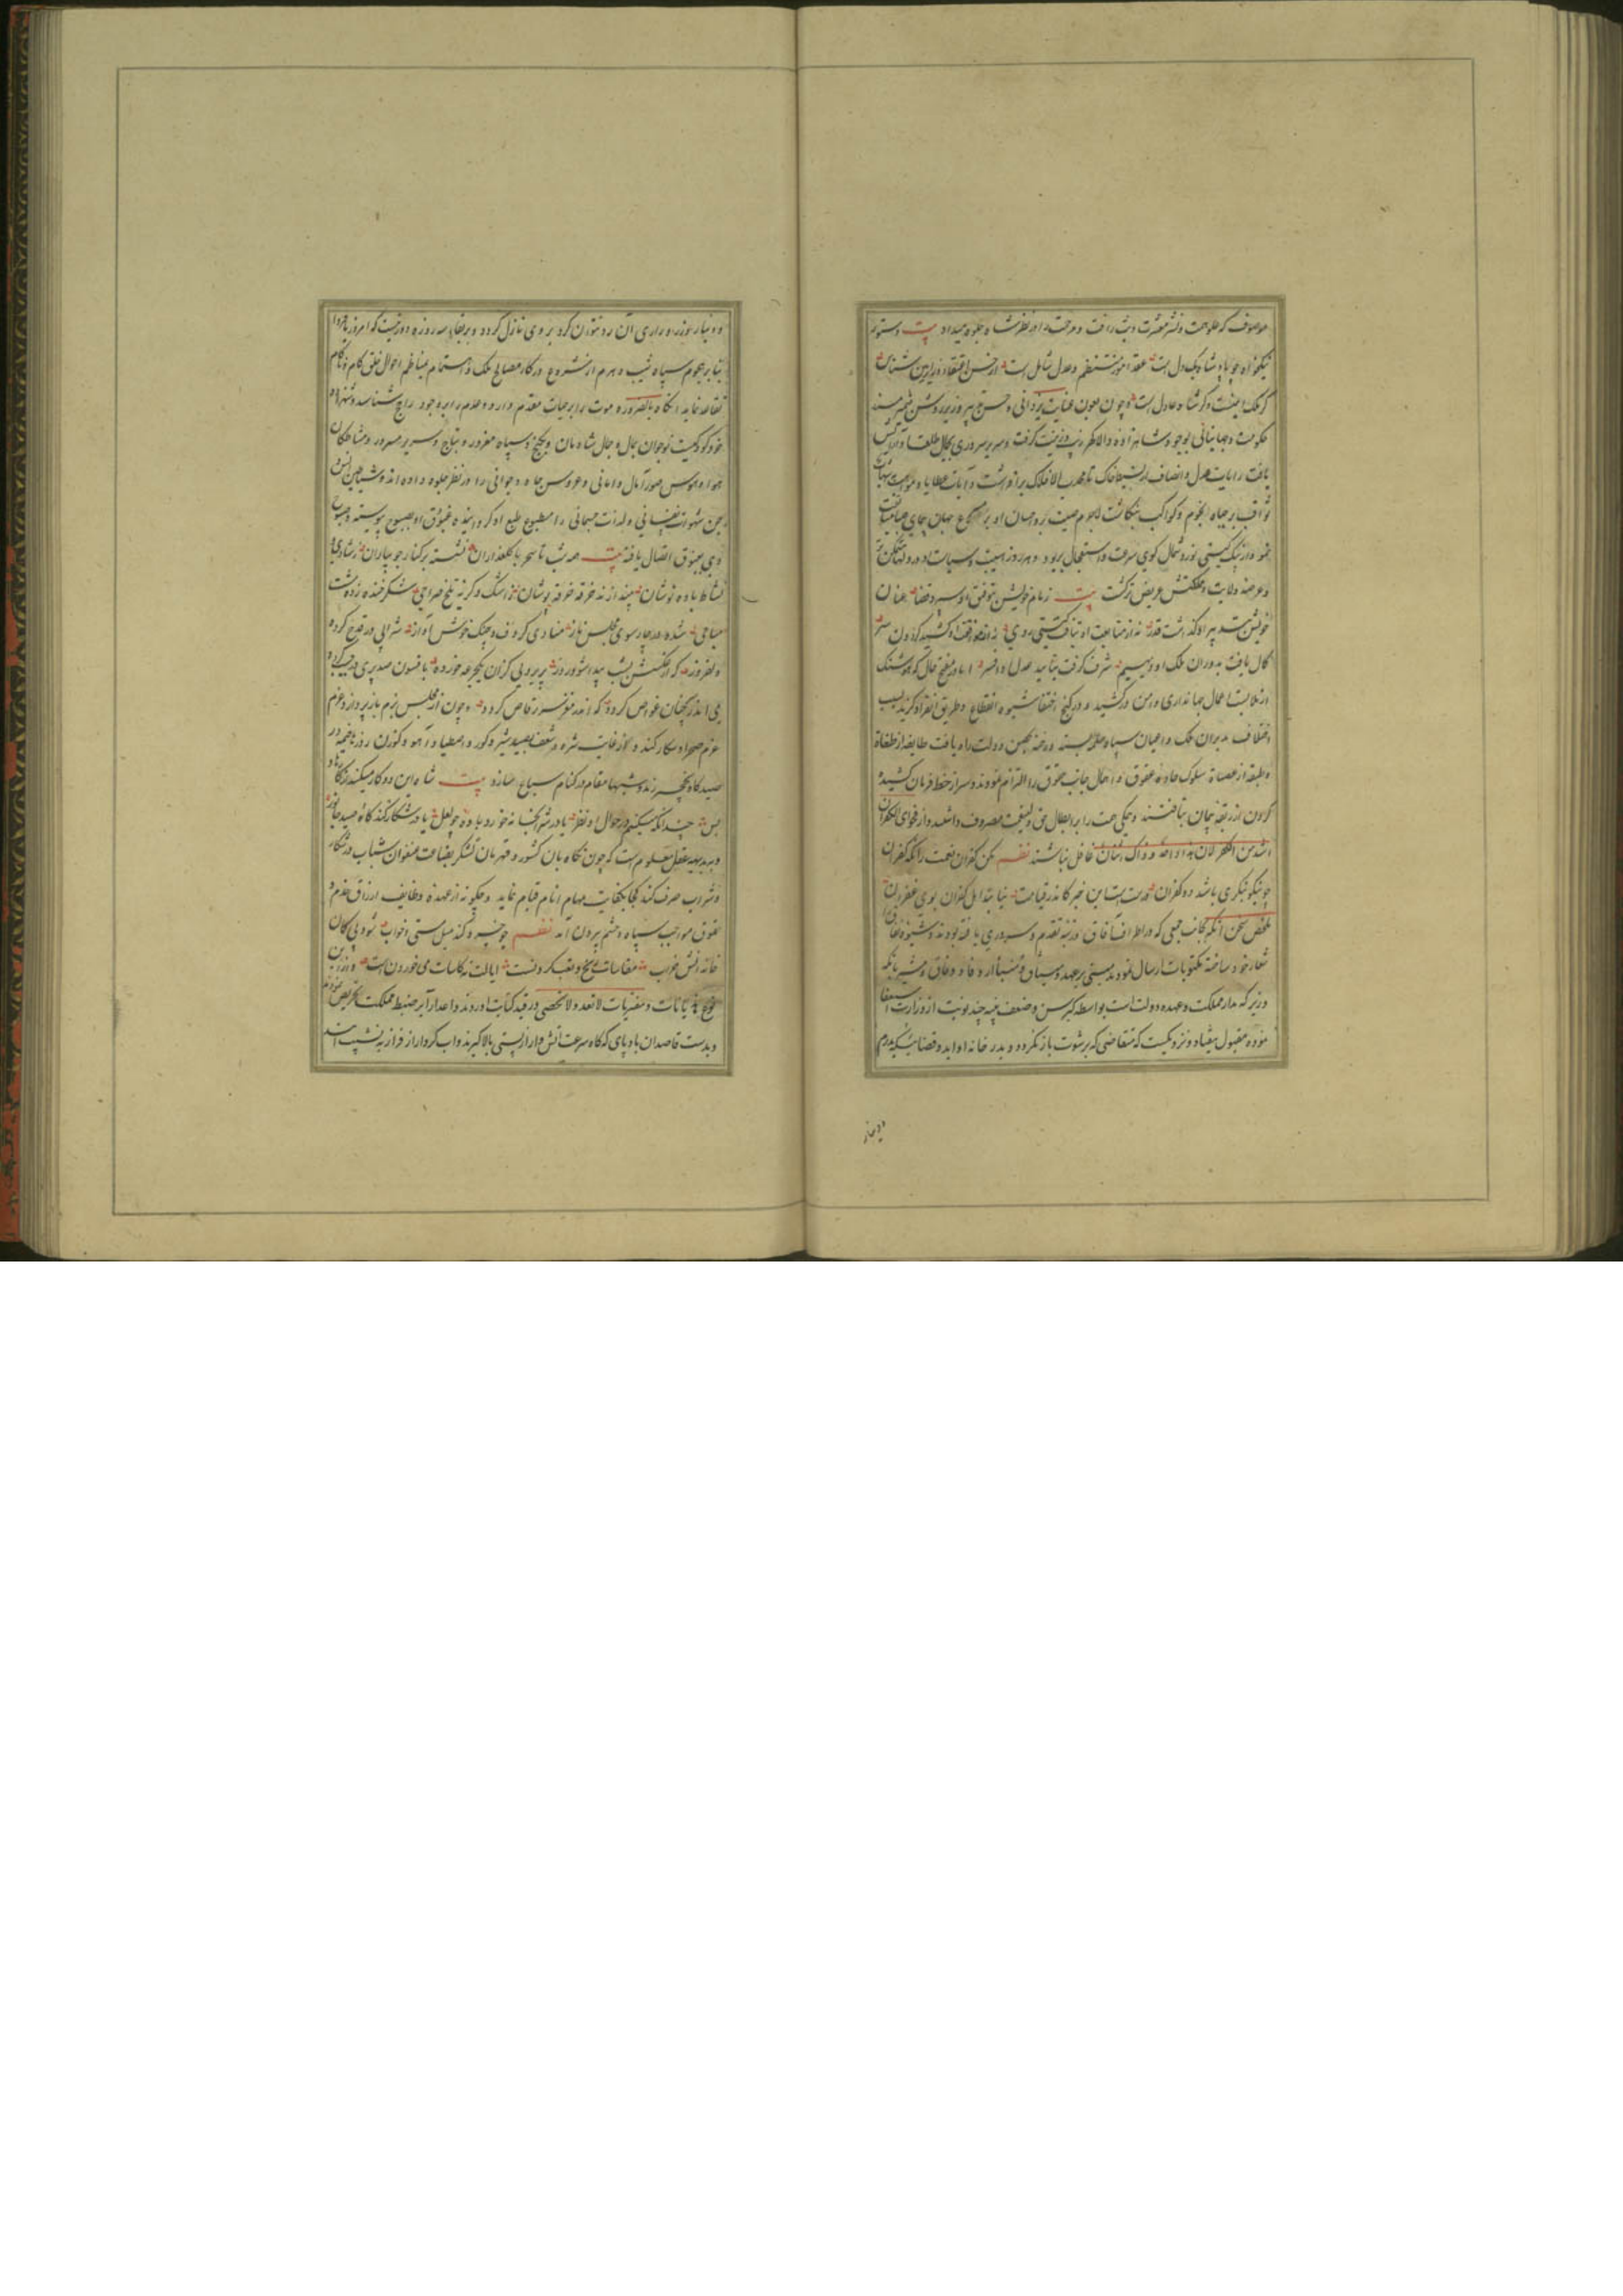 موصوف که جلو حمت و نشر معشرت و بث رافت و مرحمت را در نظر مشاه جلوه میداد بیت دستور
نیکخواه چو با پادشاه یک دل است عقد امور منتظم و عدل شامل است از حسن اعتقاد وزیر این شناس
گر ملک ایمنست و گر شاه عادل است و چون بعون عنایت یزدانی و حسن پیروز بر روشن ضمیر مسند
حکومت و جهانبانی بوجود شاهزاده والا گهر زیب و زینت گرفت و سریر سروری بجمال طلعت او آرایش
یافت رایات عدل و انصاف از بسیط خاک تا محدب الافلاک برافراشت و آیات عطایا و مواهب
ثواقب بر جباه انجوم و کواکب بنگاشت لاجرم صیت بر و احسان او بر جهان
گوی سرعت و استعجال بربود و هر روز هیبت و سیاست او در دلها متمکن تر
و عرصه ولایت و مملکتش عریض تر گشت بیت زمام خویش بتوفیق او سپرد قضا عنان
خویش بتدبیر او گذاشت قدر نه از متابعت او بتافت گیتی روی نه از موافقت او کشید گردون سر
کمال یافت بدوران ملک او دیهیم شرف گرفت بتایید عدل او افسر اما در مفتح حال که هوشنگ
از ملابست اعمال جهانداری دامن درکشید و در کنج اختفا شیوه انقطاع و طریق انفراد گزید بسبب
اختلاف مدبران ملک و اعیان سپاه رخنه بحصن دولت راه یافت طایفه از طغاة
و طبقه از عصاة سلوک جاده عقوق و اهمال جانب حقوق را التزام نمودند و سر از خط فرمان کشیده
گردن از ربقه پیمان بتافتند و همگی همت را بر ابطال حق ولی نعمت مصروف داشتند و از فحوای الکفران
اشد من الکفر غافل نباشند نظم مکن کفران نعمت را که کفران
چو نیکو بنگری باشد دو کفران درست است این خبر کاندر قیامت نیابند اهل کفران بوی غفران
ملخص سخن آنکه بجانب جمعی که در اطراف آفاق رتبه تقدم و سروری یافته بودند و شیوه نفاق
شعار خود ساخته مکتوبات ارسال نمودند مبتنی بر عهد و میثاق و منبی از وفاد و وفاق و مشیر بانکه
وزیر که مدار مملکت و عهده دولت است بواسطه کبر سن و ضعف بنیه چند نوبت از وزارت استعفا
نموده مقبول نیفتاد و نزدیکست که متقاضی که برشوت باز نگردد و بدر خانه او آید و قضا
و دینار
و دینار بوزر و زاری آن رد نتوان کرد بر وی نازل گردد و بر بقای سه روزه
بنابر هجوم سپاه شیب و هرم از شروع در کار مصالح ملک و اهتمام بمناظم احوال خلق کام و ناکام
تقاعد نماید آنگاه بالضروره موت را بر حیات مقدم دارد و عدم را بر وجود راجح شناسد و شهزاده
خود کودکیست نوجوان بمال و جمال شادمان و بگنج و سپاه مغرور و بتاج و سریر مسرور و مشاطگان
هوا و هوس صور آمال و امانی و عروس جاه و جوانی را در نظر جلوه داده اند و شیاطین انس و
جن شهوات نفسانی و لذات جسمانی را مطبوع طبع او گردانیده غبوق او بصبوح پیوسته و صبوح
وی بغبوق اتصال یافته بیت همه شب تا سحر با گلعذاران نشسته بر کنار جویباران ز شادی و
نشاط باده نوشان نیندازند خرقه خرقه پوشان ز اشک و گریه تلخ صراحی شکر خنده زدست
صباحی شده در چارسوی مجلس ناز منادی گر دف و چنگ خوش آواز شرابی در قدح کرده
دلفروز که از عکسش بشب پیدا شود روز پریرویی کزان یکجرعه خورده بافسون صد پری
می اندر جان غواص گردد که اندر مغز سر رقاص گردد و چون از مجلس بزم باز پردازد عزم
عزم صحرا و شکار کند و از غایت شره و شعف بصید شیر و گور و اصطیاد آهو و گوزن روز تا خیمه در
صیدگاه نخچیر زند و شبها مقام در کنام سباع سازد بیت شاه این دو کار میکند
بس چندانکه میکنیم در احوال او نظر یا در شرابخانه خورد باده چو لعل یا در شکار کند گاه صید جانور
و بر بدیهه عقل معلوم است که چون نگاهبان کشور و قهرمان لشکر بضاعت عنفوان شباب در شکار
و شراب صرف کند کجا بکفایت مهام انام قیام نماید و چگونه از عهده وظایف ارزاق خدم و
حقوق مواجب سپاه و حشم بیرون آید نظم چو خسرو کند میل مستی و خواب شود بی گمان
خانه اش خراب مقاسات رنج و تعب کردنست ایالت نه کاسات می خوردن است و ازین
نوع هذیانات و مفتریات لا تعد و لا تحصی در قید کتابت آوردند و اعدا را بر ضبط مملکت تحریص نمودند
و بدست قاصدان بادپای که گاه سرعت آتش وار از پستی بالا گیرند و آب کردار از فراز به نشیب آیند